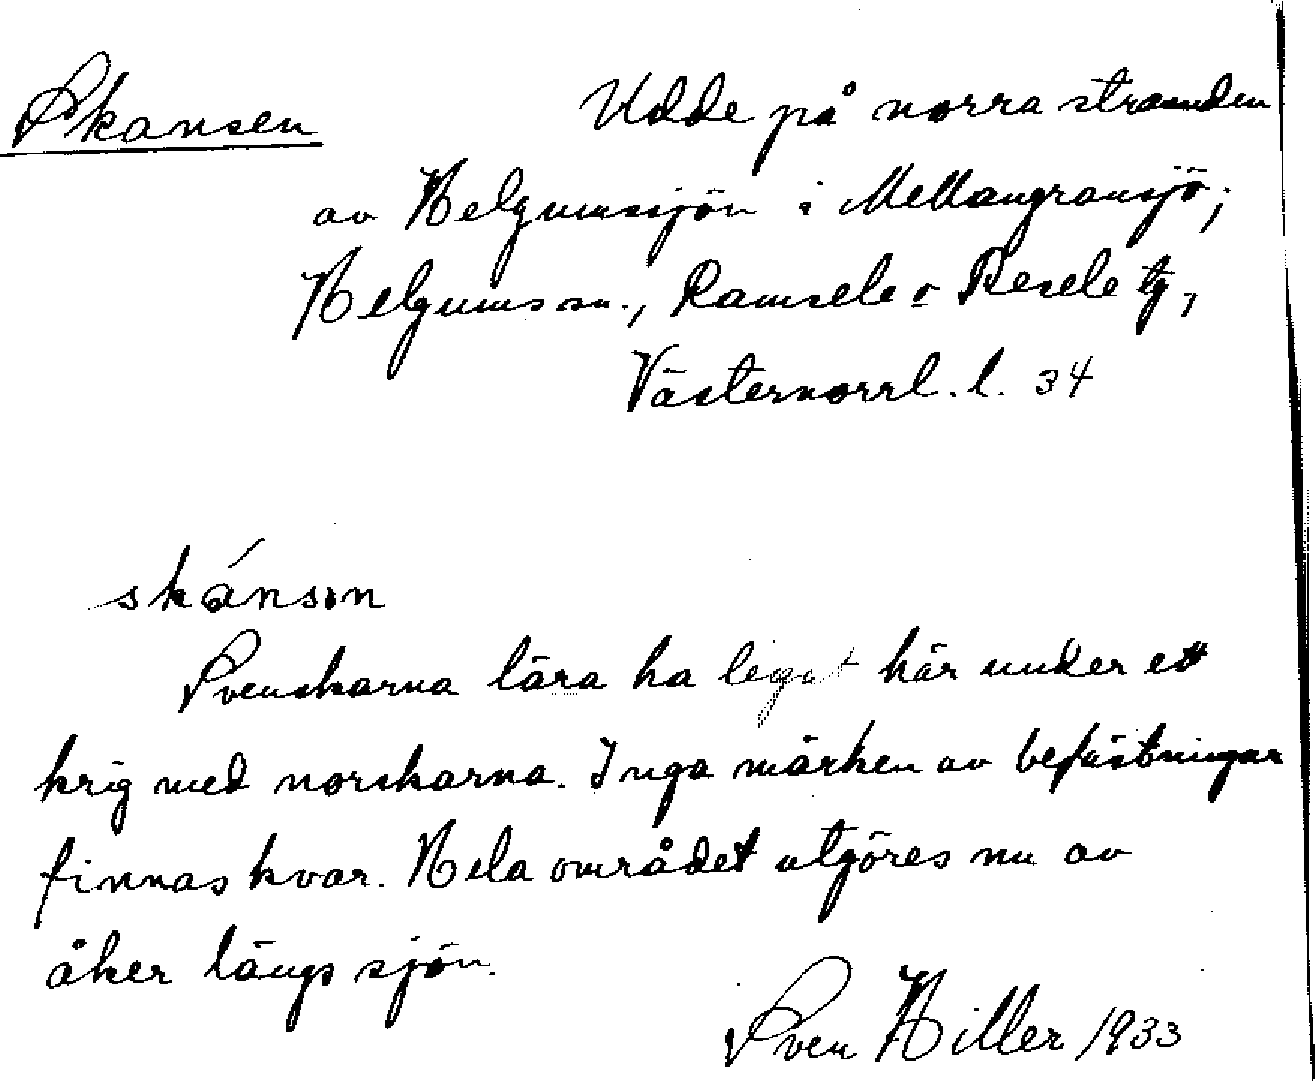 Skansen Udde på norra stranden
av Helgumssjön i Mellangransjö;
Helgums sn., Ramsele o Resele tg,
Västernorrl. l. 34
skánsɷn
Svenskarna lära ha legat här under ett
krig med norskarna. Inga märken av befästningar
finnas kvar. Hela området utgöres nu av
åker längs sjön.
Sven Hiller 1933